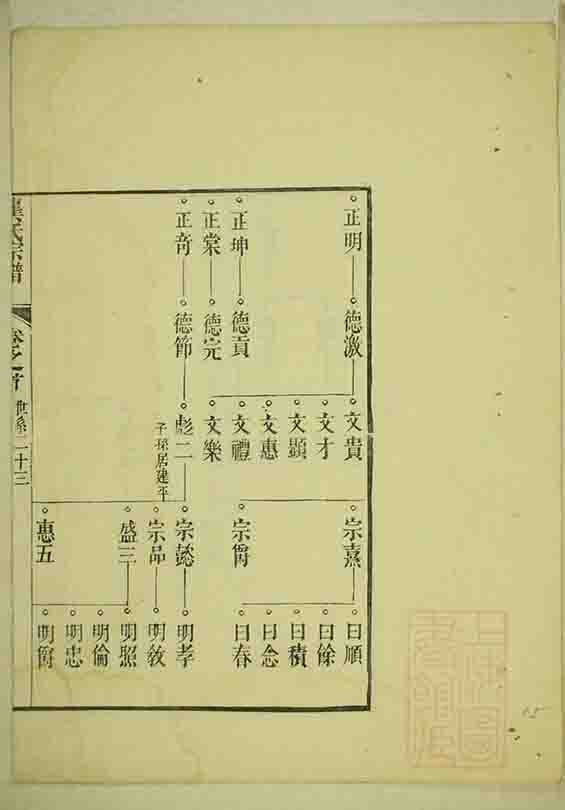 正明
正坤
正棠
正奇
德激
德貢
德完
德節
文貴
文才
文顯
文惠
文禮
文樂
彪二
子孫居建平
宗熹
宗爵
宗懿
宗品
盛三
惠五
曰順
曰餘
曰積
曰念
曰春
明孝
明教
明照
明倫
明忠
明爵
氏宗譜
卷之首
世系二十三